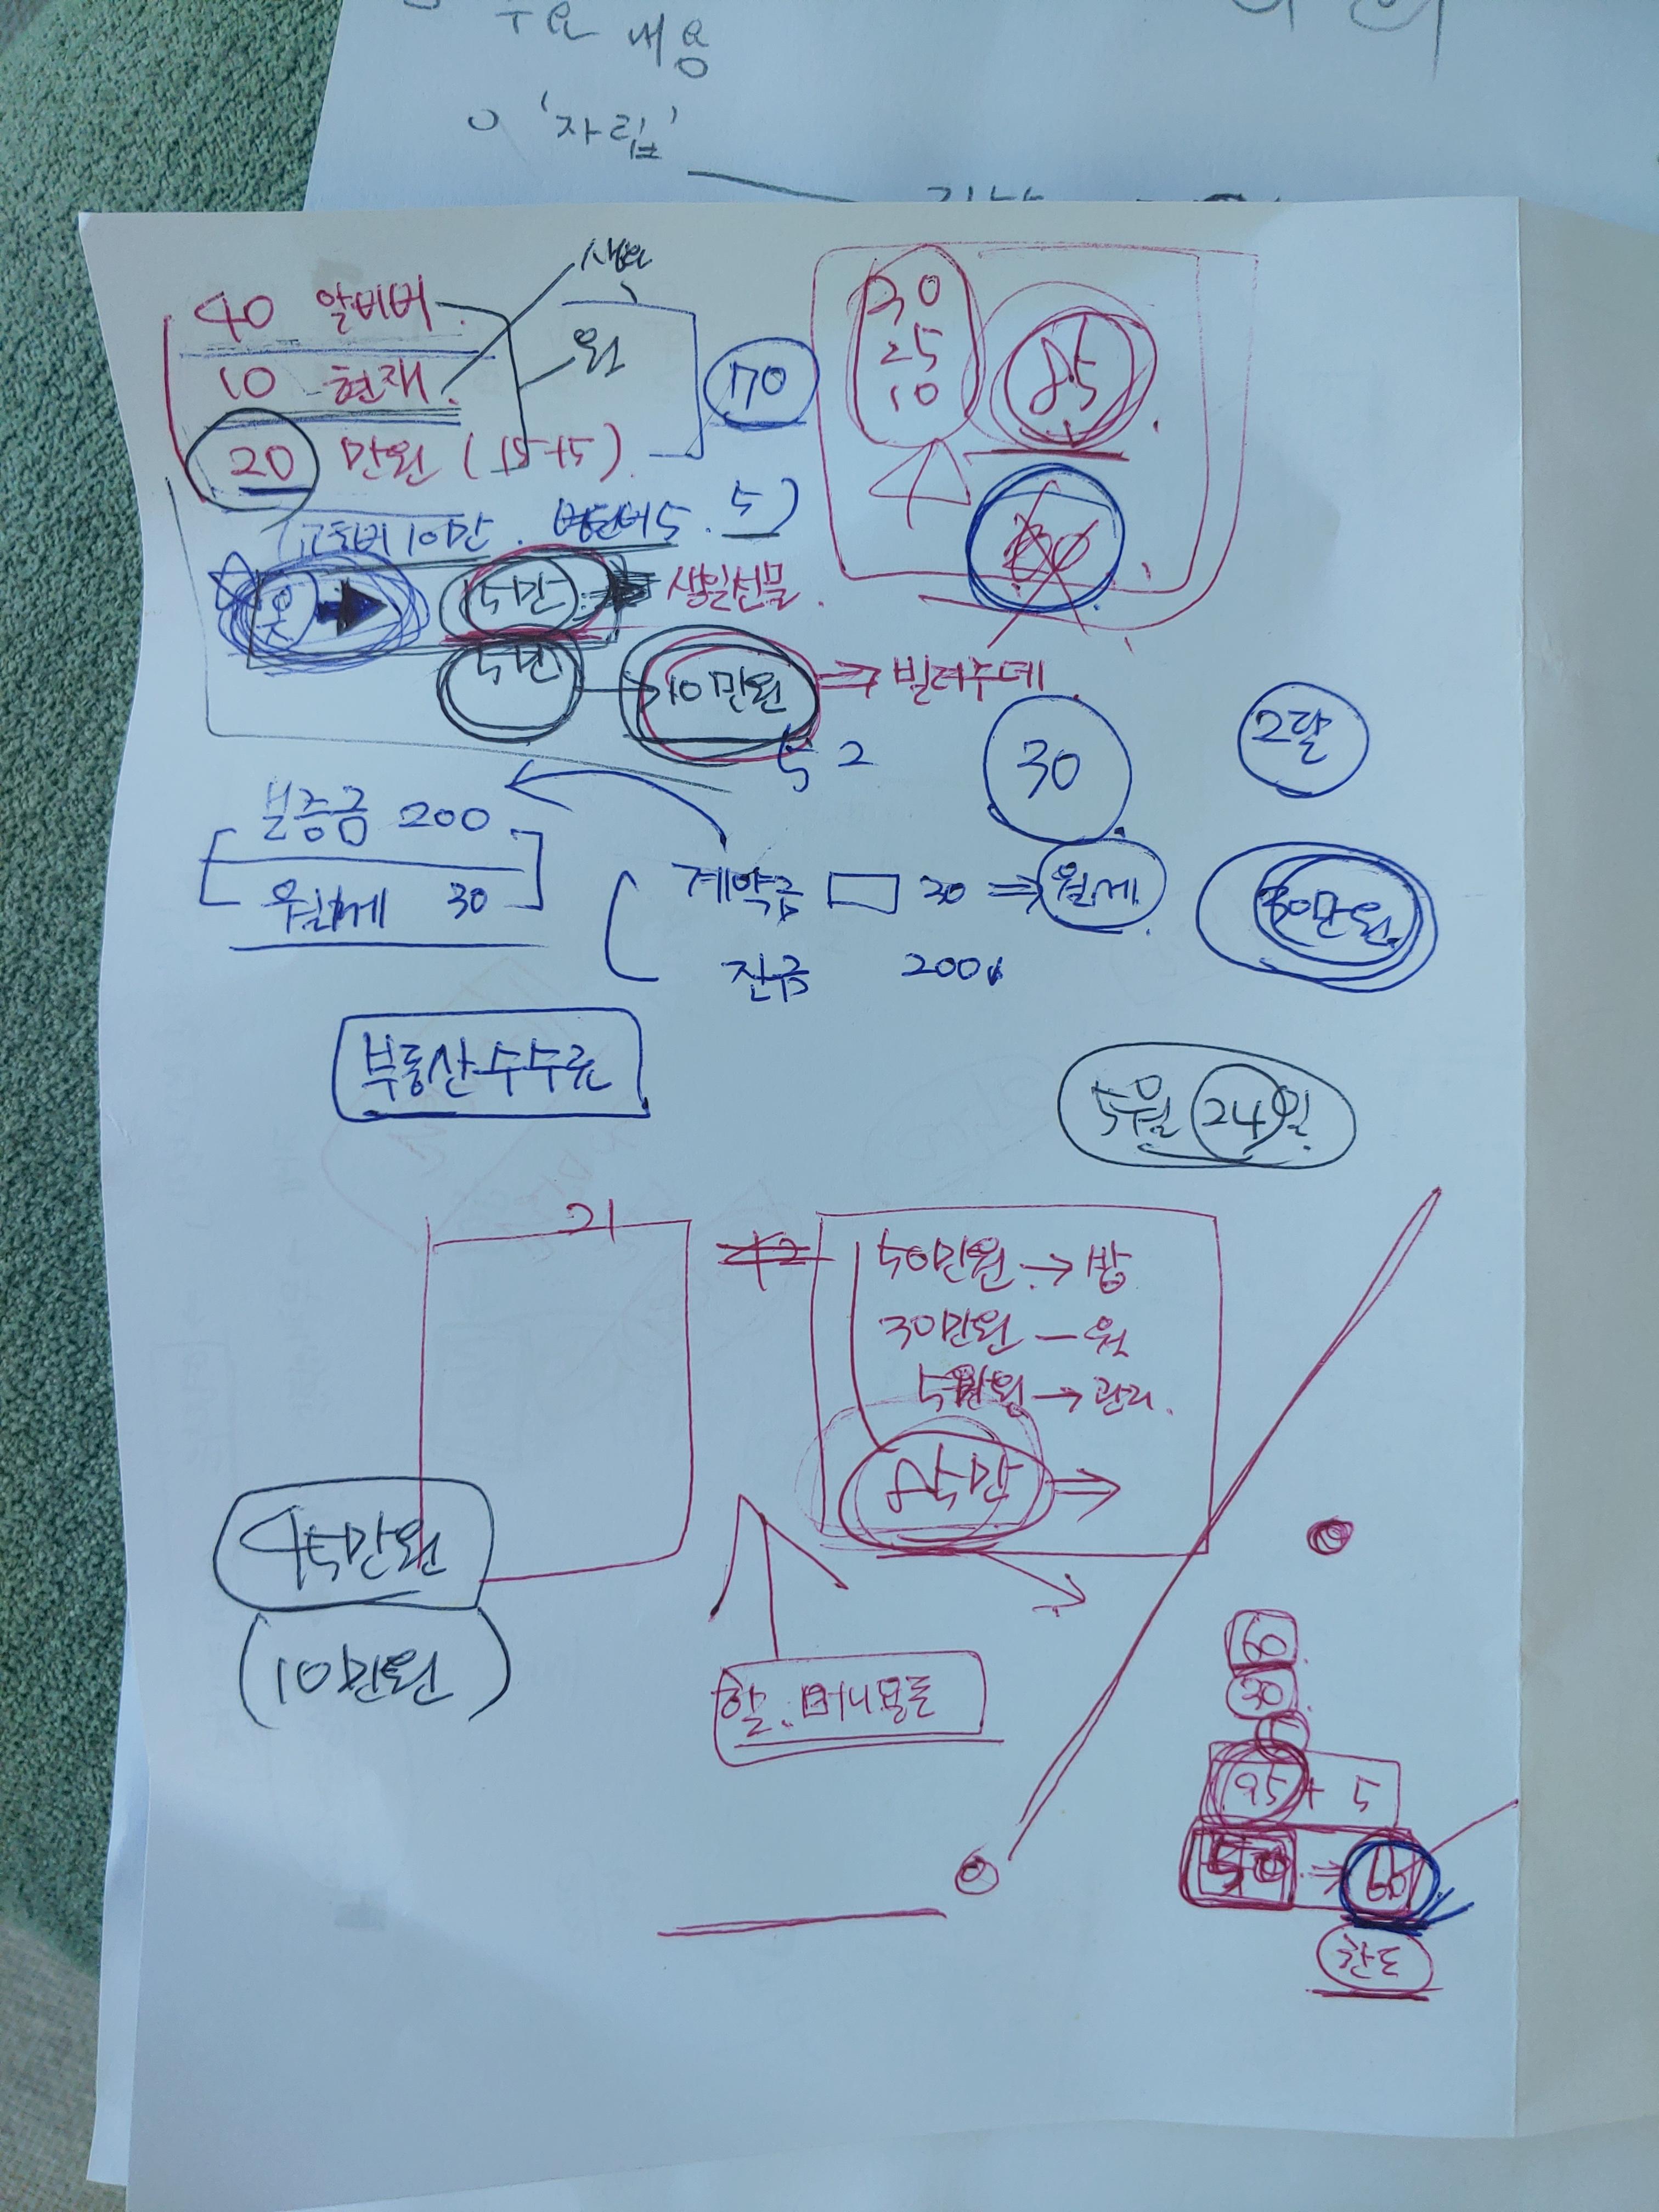 주요 내용
○ '자립'
40 알바비
10 현재
20 만원 (15+5)
원
70
25
10
85
교통비 10만. 5)
옷
5만 생일선물
5만 10만원 ⇒ 빌려주데
52
30
2달
보증금 200
월세 30
계약금 30 ⇒ 월세
잔금 200
30만원
부동산수수료
5월 24일
21
42
50만원 → 방
30만원 — 월
5만원 → 관리
85만 ⇒
45만원
(10만원)
60
30
95 + 5
50 ⇒ 60
한도